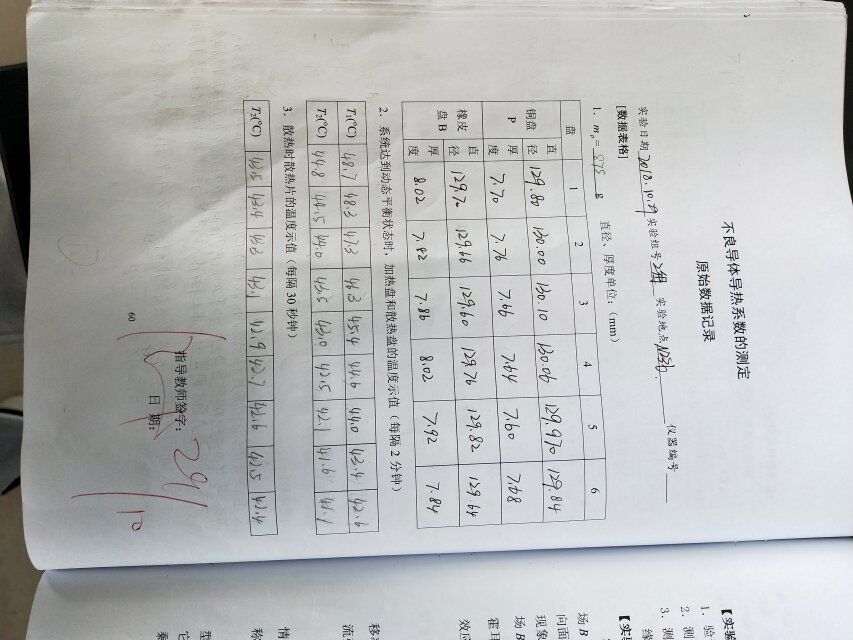 不良导体导热系数的测定
原始数据记录
实验日期 2018.10.29 实验组号 2组 实验地点 仪器编号
[数据表格]
1. mp = 878 g 直径、厚度单位：(mm)
盘 1 2 3 4 5 6
铜盘P 直径 129.80 130.00 130.10 130.06 129.970 129.84
厚度 7.70 7.76 7.66 7.64 7.60 7.68
橡皮盘B 直径 129.70 129.66 129.60 129.76 129.82 129.64
厚度 8.02 7.92 7.86 8.02 7.92 7.84
2. 系统达到动态平衡状态时，加热盘和散热盘的温度示值（每隔 2 分钟）
T₁(℃) 48.7 48.3 47.3 46.3 45.4 44.6 44.0 43.4 42.6
T₂(℃) 44.8 44.5 44.0 43.5 43.0 42.5 42.1 41.6 41.1
3. 散热时散热片的温度示值（每隔 30 秒钟）
T₂(℃) 43.5 43.4 43.3 43.1 42.9 42.7 42.6 42.5 42.4
指导教师签字：
日 期： 29/10
60
【实验
1. 验
2. 测
3. 测
缘
【实
场 B
向面
现象
场 B
霍耳
效应
移
流
情
称
型
它
乘